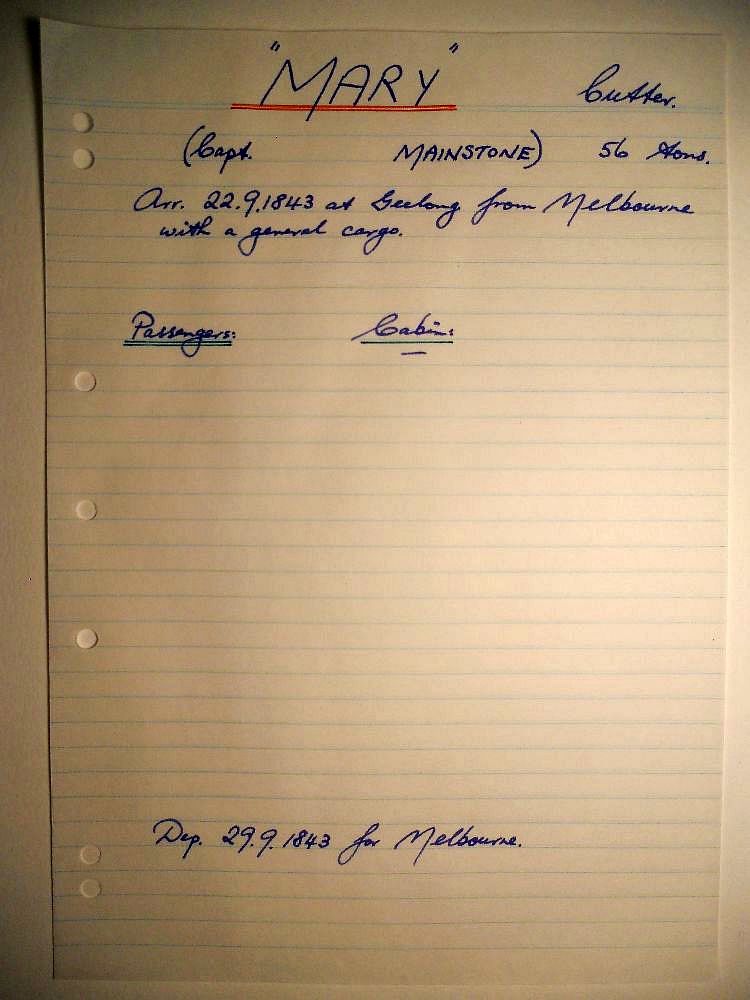 "MARY" Cutter.
(Capt. MAINSTONE) 56 tons.
Arr. 22.9.1843 at Geelong from Melbourne
with a general cargo.
Passengers: Cabin:
—
Dep. 29.9.1843 for Melbourne.